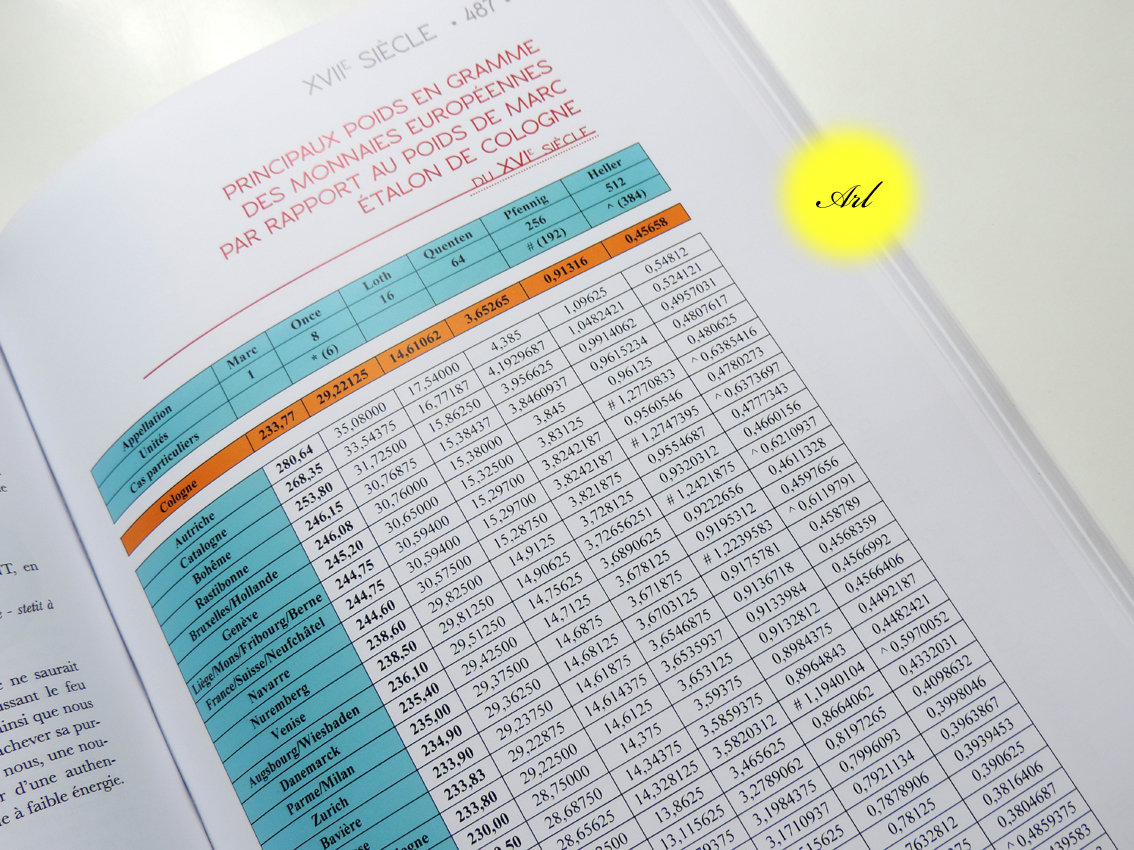 XVIIᴱ SIÈCLE • 487 •
PRINCIPAUX POIDS EN GRAMME
DES MONNAIES EUROPÉENNES
PAR RAPPORT AU POIDS DE MARC
ÉTALON DE COLOGNE
DU XVIᴱ SIÈCLE
Arl
Appellation Marc Once Loth Quenten Pfennig Heller
Unités 1 8 16 64 256 512
Cas particuliers * (6) # (192) ^ (384)
Cologne 233,77 29,22125 14,61062 3,65265 0,91316 0,45658
Autriche 280,64 35,08000 17,54000 4,385 1,09625 0,54812
Catalogne 268,35 33,54375 16,77187 4,1929687 1,0482421 0,524121
Bohême 253,80 31,72500 15,86250 3,956625 0,9914062 0,4957031
Rastibonne 246,15 30,76875 15,38437 3,8460937 0,9615234 0,4807617
Bruxelles/Hollande 246,08 30,76000 15,38000 3,845 0,96125 0,480625
Genève 245,20 30,65000 15,32500 3,83125 # 1,2770833 ^ 0,6385416
Liège/Mons/Fribourg/Berne 244,75 30,59400 15,29700 3,8242187 0,9560546 0,4780273
France/Suisse/Neufchâtel 244,75 30,59400 15,29700 3,8242187 # 1,2747395 ^ 0,6373697
Navarre 244,60 30,57500 15,28750 3,821875 0,9554687 0,4777343
Nuremberg 238,60 29,82500 14,9125 3,728125 0,9320312 0,4660156
Venise 238,50 29,81250 14,90625 3,72656251 # 1,2421875 ^ 0,6210937
Augsbourg/Wiesbaden 236,10 29,51250 14,75625 3,6890625 0,922656 0,4611328
Danemarck 235,40 29,42500 14,7125 3,678125 0,9195312 0,4597656
Parme/Milan 235,00 29,37500 14,6875 3,671875 # 1,2239583 ^ 0,6119791
Zurich 234,90 29,36250 14,68125 3,6703125 0,9175781 0,458789
Bavière 233,90 29,23750 14,61875 3,6546875 0,9136718 0,4568359
sse 233,83 29,22875 14,614375 3,6535937 0,9133984 0,4566992
ogne 233,80 29,22500 14,6125 3,653125 0,9132812 0,4566406
230,00 28,75000 14,375 3,59375 0,8984375 0,4492187
,50 28,68750 14,34375 3,5859375 0,8964843 0,4482421
28,65625 14,328125 3,5820312 # 1,1940104 ^ 0,5970052
13,8625 3,465625 0,8664062 0,4332031
13,115625 3,2789062 0,8197265 0,4098632
3,1984375 0,7996093 0,3998046
3,1710937 0,7921134 0,3963867
0,7878906 0,3939453
0,78125 0,390625
0,3816406
0,3804687
^ 0,4859375
T, en
- stetit à
ne saurait
ssant le feu
insi que nous
chever sa pur-
nous, une nou-
d'une authen-
à faible énergie.